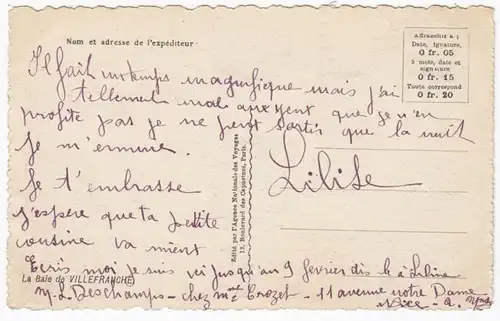 Nom et adresse de l'expéditeur
Affranchir à :
Date, signature,
0 fr. 05
5 mots, date et
signature
0 fr. 15
Toute correspond
0 fr. 20
Il fait un temps magnifique mais j'ai
tellement mal aux yeux que je n'en
profite pas je ne peut sortir que la nuit
je m'ennuie.
Je t'embrasse
j'espère que ta petite
cousine va mieux
Lilise
Edité par l'Agence Nationale des Voyages
12, Boulevard des Capucines, Paris.
Ecris moi je suis ici jusqu'au 9 fevrier dis le à
La Baie de VILLEFRANCHE
M. L. Deschamps - chez Crozet - 11 avenue notre Dame
Nice - A.